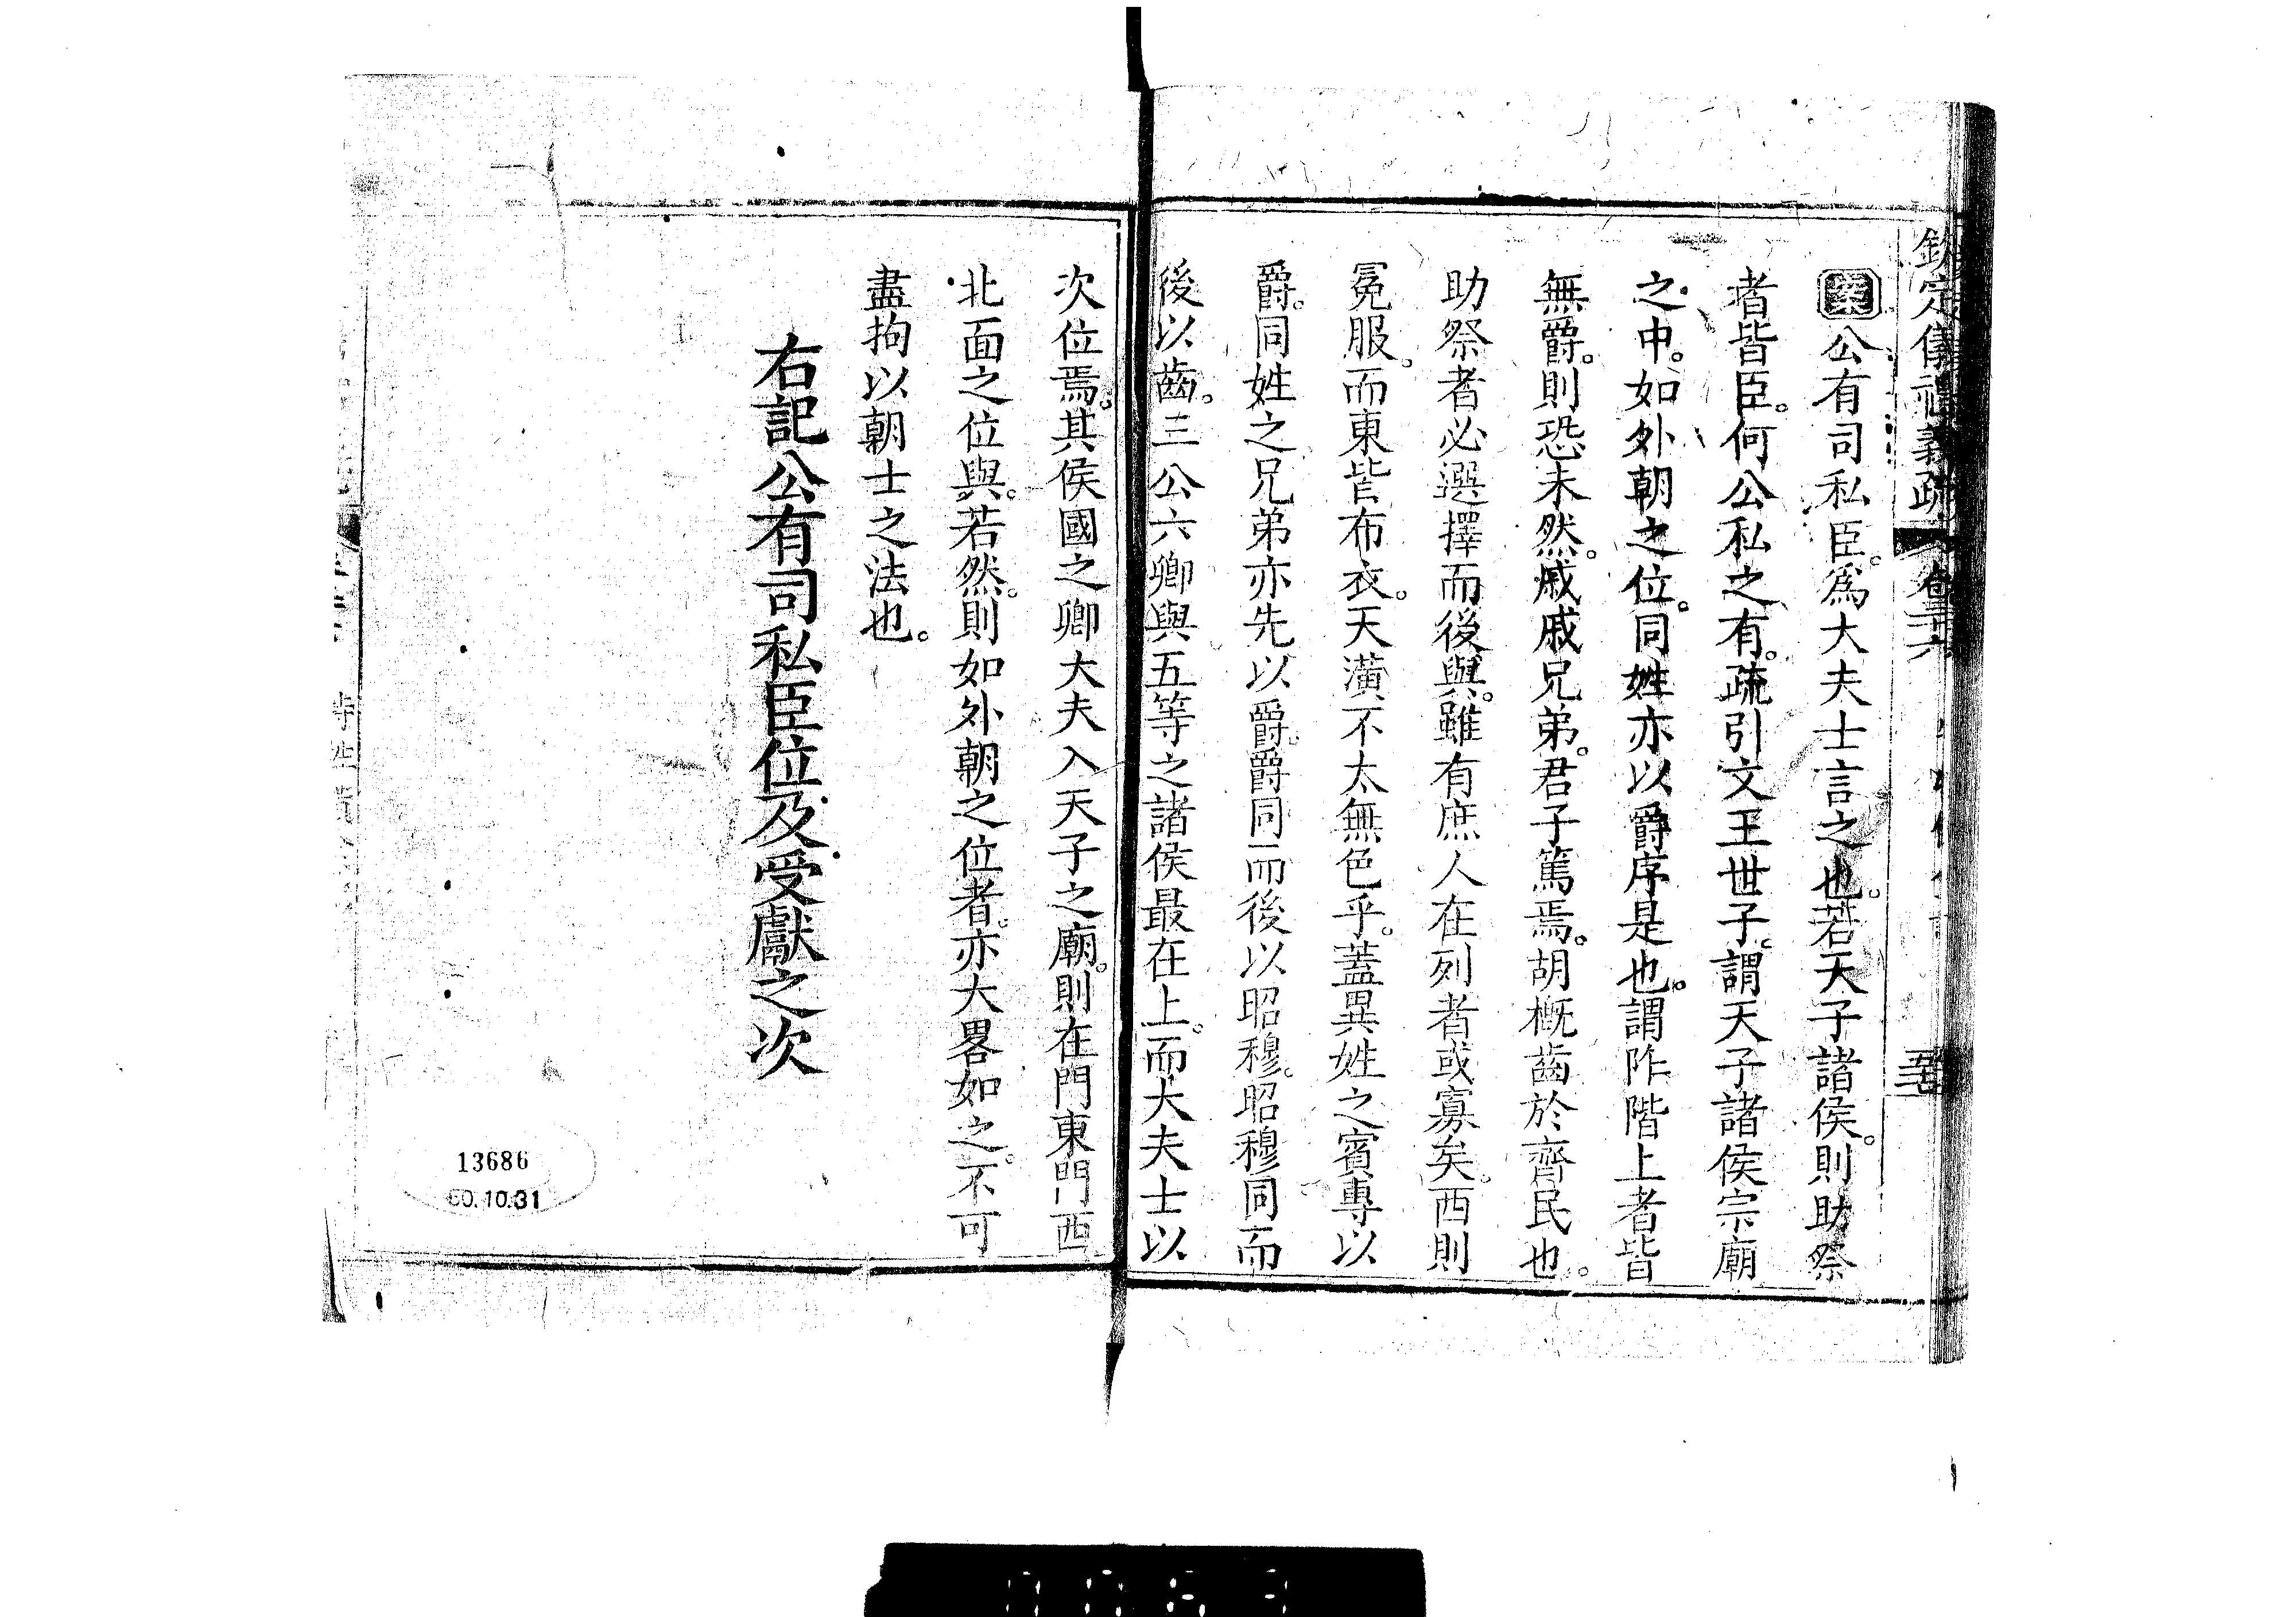 欽定儀禮義疏 卷三十六
案公有司私臣。爲大夫士言之也。若天子諸侯。則助祭
者皆臣。何公私之有。疏引文王世子。謂天子諸侯宗廟
之中。如外朝之位。同姓亦以爵序是也。謂阼階上者皆
無爵。則恐未然。戚戚兄弟。君子篤焉。胡概齒於齊民也。
助祭者必選擇而後與。雖有庶人在列者或寡矣。西則
冕服。而東皆布衣。天潢不太無色乎。蓋異姓之賓專以
爵。同姓之兄弟亦先以爵。爵同而後以昭穆。昭穆同而
後以齒。三公六卿與五等之諸侯最在上。而大夫士以
次位焉。其侯國之卿大夫入天子之廟。則在門東門西
北面之位與。若然。則如外朝之位者。亦大畧如之。不可
盡拘以朝士之法也。
右記公有司私臣位及受獻之次
13686
60.10.31